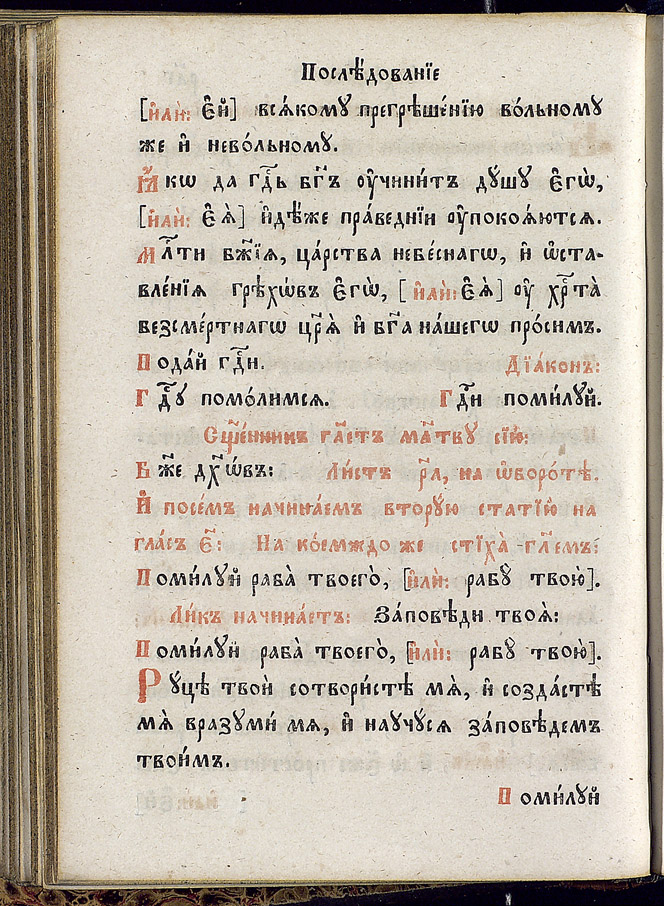 Послѣ́дованїе
[и҆лѝ: є҆́й] всѧ́кому прегрѣше́нїю во́льному
же и҆ нево́льному.
Ꙗ҆́кѡ да гд҇ь бг҃ъ ᲂу҆чини́тъ дꙋ́шꙋ є҆гѡ̀,
[и҆лѝ: є҆ѧ̀] и҆дѣ́же пра́веднїи ᲂу҆поко́ѧютсѧ.
Мл҇ти бж҃їѧ, ца́рства небе́снагѡ, и҆ ѡ҆ста-
вле́нїѧ грѣхѡ́въ є҆гѡ̀, [и҆лѝ: є҆ѧ̀] ᲂу҆ хр҇та̀
безсме́ртнагѡ цр҃ѧ̀ и҆ бг҃а на́шегѡ про́симъ.
Пода́й гд҇и. Дїа́конъ:
Гд҇ꙋ помо́лимсѧ. Гд҇и поми́лꙋй.
Сщ҃е́нникъ гл҃етъ мл҃твꙋ сїю̀:
Бж҃е дх҃ѡ́въ: Ли́стъ рл҃, на ѡ҆боро́тѣ.
И҆ посе́мъ начина́емъ вторꙋ́ю статїю̀ на
гла́съ є҃: На ко́емждо же стїха̀ гл҃емъ:
Поми́лꙋй раба̀ твоего̀, [и҆лѝ: рабꙋ̀ твою̀].
Ли́къ начина́етъ: За́повѣди твоѧ̀:
Поми́лꙋй раба̀ твоего̀, [и҆лѝ: рабꙋ̀ твою̀].
Рꙋцѣ твоѝ сотвори́стѣ мѧ̀, и҆ созда́стѣ
мѧ̀ вразꙋми́ мѧ, и҆ наꙋчꙋ́сѧ за́повѣдемъ
твои́мъ.
Поми́лꙋй